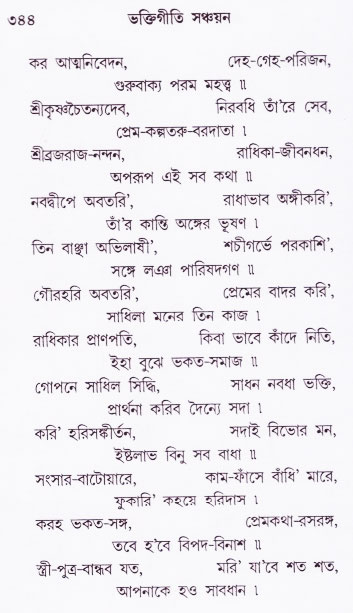 ৩৪৪ ভক্তিগীতি সঞ্চয়ন
কর আত্মনিবেদন, দেহ-গেহ-পরিজন,
গুরুবাক্য পরম মহত্ত্ব ॥
শ্রীকৃষ্ণচৈতন্যদেব, নিরবধি তাঁ'রে সেব,
প্রেম-কল্পতরু-বরদাতা ।
শ্রীব্রজরাজ-নন্দন, রাধিকা-জীবনধন,
অপরূপ এই সব কথা ॥
নবদ্বীপে অবতরি', রাধাভাব অঙ্গীকরি',
তাঁ'র কান্তি অঙ্গের ভূষণ ।
তিন বাঞ্ছা অভিলাষী', শচীগর্ভে পরকাশি',
সঙ্গে লঞা পারিষদগণ ॥
গৌরহরি অবতরি', প্রেমের বাদর করি',
সাধিলা মনের তিন কাজ ।
রাধিকার প্রাণপতি, কিবা ভাবে কাঁদে নিতি,
ইহা বুঝে ভকত-সমাজ ॥
গোপনে সাধিল সিদ্ধি, সাধন নবধা ভক্তি,
প্রার্থনা করিব দৈন্যে সদা ।
করি' হরিসঙ্কীর্তন, সদাই বিভোর মন,
ইষ্টলাভ বিনু সব বাধা ॥
সংসার-বাটোয়ারে, কাম-ফাঁসে বাঁধি' মারে,
ফুকারি' কহয়ে হরিদাস ।
করহ ভকত-সঙ্গ, প্রেমকথা-রসরঙ্গ,
তবে হ'বে বিপদ-বিনাশ ॥
স্ত্রী-পুত্র-বান্ধব যত, মরি' যা'বে শত শত,
আপনাকে হও সাবধান ।